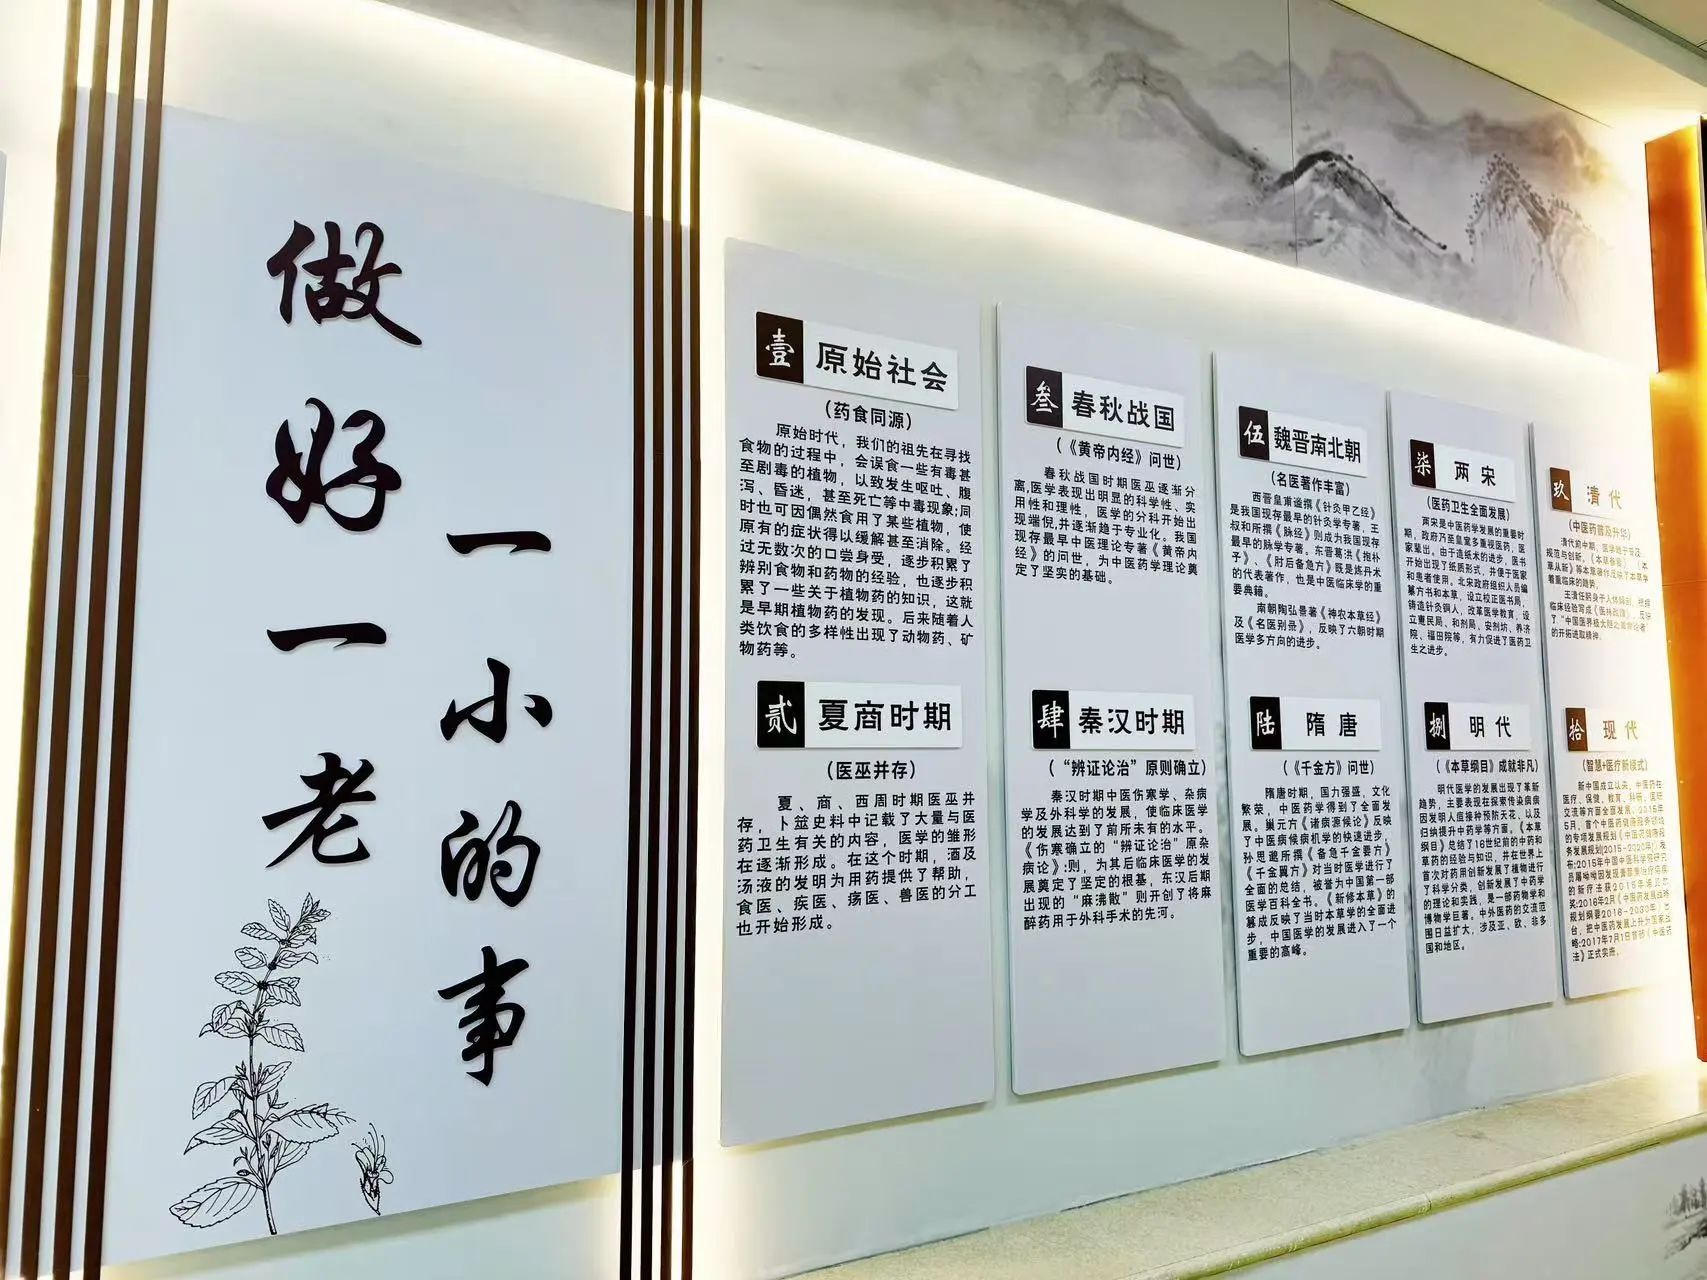 做好一老
一小的事
壹 原始社会
(药食同源)
原始时代，我们的祖先在寻找
食物的过程中，会误食一些有毒甚
至剧毒的植物，以致发生呕吐、腹
泻、昏迷，甚至死亡等中毒现象；同
时也可因偶然食用了某些植物，使
原有的症状得以缓解甚至消除。经
过无数次的口尝身受，逐步积累了
辨别食物和药物的经验，也逐步积
累了一些关于植物药的知识，这就
是早期植物药的发现。后来随着人
类饮食的多样性出现了动物药、矿
物药等。
贰 夏商时期
(医巫并存)
夏、商、西周时期医巫并
存，卜筮史料中记载了大量与医
药卫生有关的内容，医学的雏形
在逐渐形成。在这个时期，酒及
汤液的发明为用药提供了帮助，
食医、疾医、疡医、兽医的分工
也开始形成。
叁 春秋战国
(《黄帝内经》问世)
春秋战国时期医巫逐渐分
离，医学表现出明显的科学性、实
用性和理性，医学的分科开始出
现端倪，并逐渐趋于专业化。我国
现存最早中医理论专著《黄帝内
经》的问世，为中医药学理论奠
定了坚实的基础。
肆 秦汉时期
(“辨证论治”原则确立)
秦汉时期中医伤寒学、杂病
学及外科学的发展，使临床医学
的发展达到了前所未有的水平。
《伤寒确立的“辨证论治”原杂
病论》；则，为其后临床医学的发
展奠定了坚定的根基，东汉后期
出现的“麻沸散”则开创了将麻
醉药用于外科手术的先河。
伍 魏晋南北朝
(名医著作丰富)
西晋皇甫谧撰《针灸甲乙经》
是我国现存最早的针灸学专著，王
叔和所撰《脉经》则成为我国现存
最早的脉学专著。东晋葛洪《抱朴
子》、《肘后备急方》既是炼丹术
的代表著作，也是中医临床学的重
要典籍。
南朝陶弘景著《神农本草经》
及《名医别录》，反映了六朝时期
医学多方向的进步。
陆 隋唐
(《千金方》问世)
隋唐时期，国力强盛，文化
繁荣，中医药学得到了全面发
展。巢元方《诸病源候论》反映
了中医病候病机学的快速进步，
孙思邈所撰《备急千金要方》
《千金翼方》对当时医学进行了
全面的总结，被誉为中国第一部
医学百科全书。《新修本草》的
纂成反映了当时本草学的全面进
步，中国医学的发展进入了一个
重要的高峰。
柒 两宋
(医药卫生全面发展)
两宋是中医药学发展的重要时
期，政府乃至皇室多重视医药，医
家辈出。由于造纸术的进步，医书
开始出现了纸质形式，并便于医家
和患者使用。北宋政府组织人员编
纂方书和本草，设立校正医书局，
铸造针灸铜人，改革医学教育，设
立惠民局、和剂局、安剂坊、养济
院、福田院等，有力促进了医药卫
生之进步。
捌 明代
(《本草纲目》成就非凡)
明代医学的发展出现了革新
趋势，主要表现在探索传染病病
因发明人痘接种预防天花、以及
归纳提升中药学等方面。《本草
纲目》总结了16世纪前的中药和
草药的经验与知识，并在世界上
首次对药用创新发展了植物进行
了科学分类，创新发展了中药学
的理论和实践，是一部药物学和
博物学巨著。中外医药的交流范
围日益扩大，涉及亚、欧、非多
国和地区。
玖 清代
(中医药普及升华)
清代前中期，医学趋于普及、
规范与创新，《本草备要》《本
草从新》等本草著作反映了本草学
着重临床的趋势。
临床经验写成《医林改错》，反映
的开拓进取精神。
拾 现代
(智慧+医疗新模式)
新中国成立以来，中医药在
医疗、保健、教育、科研、
交流等方面全面发展。2015年
5月，首个中医药健康服务领域
的专项发展规划《中医药健康服
务发展规划(2015-2020年)》发
布；2015年中国中医科学院研究
的新疗法获2015年
奖；2016年2月《中医药发展战略
规划纲要2016-2030年》出
台，把中医药发展上升为国家战
略；2017年7月1日首部《中医药
法》正式实施。